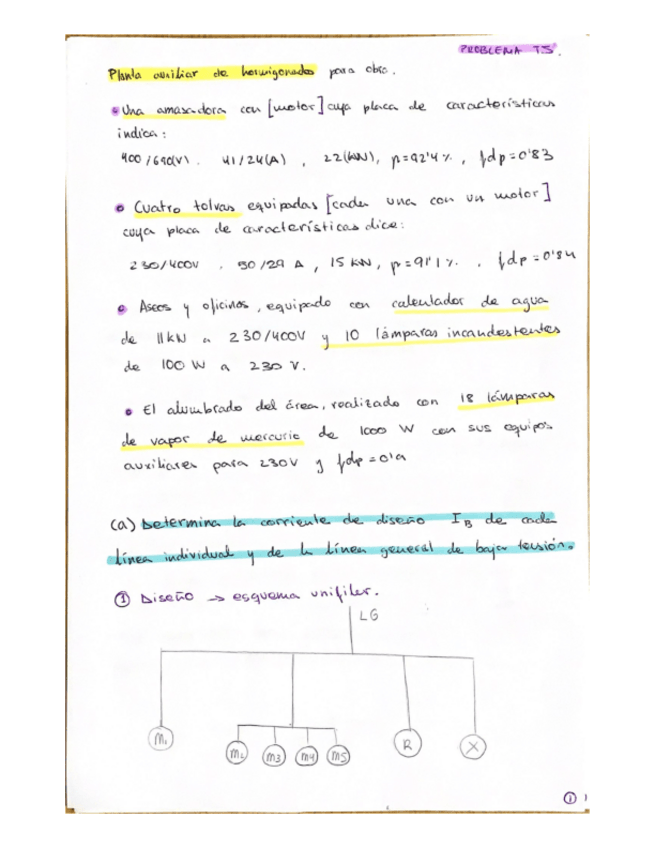 PROBLEMA T5.
Planta auxiliar de hormigonados para obra.
• Una amasadora con [motor] cuya placa de características
indica:
400/690(V). 41/24(A), 22(kW), η=92'4%, fdp=0'83
• Cuatro tolvas equipadas [cada una con un motor]
cuya placa de características dice:
230/400V. 50/29 A, 15 kW, η=91'1%. , fdp=0'84
• Aseos y oficinas, equipado con calentador de agua
de 11kW a 230/400V y 10 lámparas incandestentes
de 100 W a 230 V.
• El alumbrado del área, realizado con 18 lámparas
de vapor de mercurio de 1000 W con sus equipos
auxiliares para 230V y fdp=0'9
(a) Determina la corriente de diseño I_B de cada
línea individual y de la línea general de baja tensión.
① Diseño → esquema unifiler.
LG
M1
M2 M3 M4 M5
R
X
①